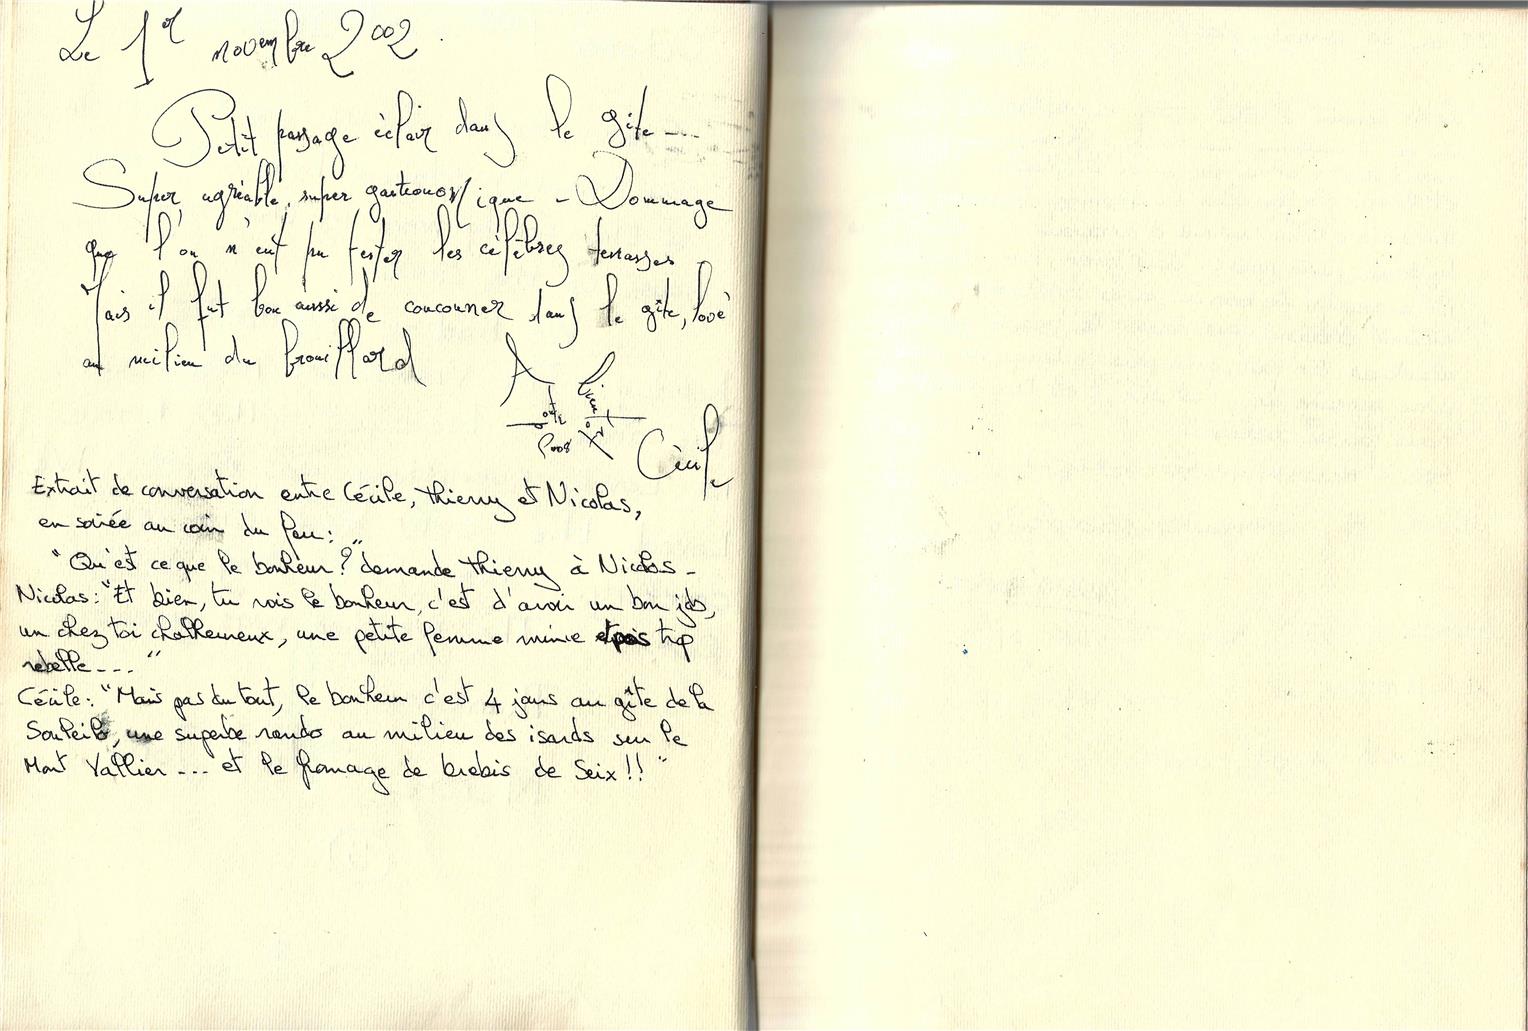 Le 1er novembre 2002.
Petit passage éclair dans le gîte ---
Super agréable, super gastronomique - Dommage
que l'on n'eut pu tester les célèbres terrasses
Mais il fut bon aussi de coucouner dans le gîte, lové
au milieu du brouillard
A bientôt
pour
Cécile
Extrait de conversation entre Cécile, Thierry et Nicolas,
en soirée au coin du feu :
"Qu'est ce que le bonheur ?" demande Thierry à Nicolas -
Nicolas : "Et bien, tu vois le bonheur, c'est d'avoir un bon job,
un chez toi chaleureux, une petite femme mince et pas trop
rebelle --- "
Cécile : "Mais pas du tout, le bonheur c'est 4 jours au gîte de la
Souleilo, une superbe rando au milieu des isards sur le
Mont Vallier --- et le fromage de brebis de Seix !! "